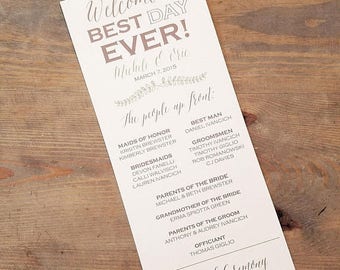 Welcome
BEST DAY
EVER!
Michele & Eric
MARCH 7, 2015
The people up front:
MAIDS OF HONOR
KRISTIN BREWSTER
KIMBERLY BREWSTER
BRIDESMAIDS
DEVON FANELLI
CALLI WALVISCH
LAUREN IVANCICH
BEST MAN
DANIEL IVANCICH
GROOMSMEN
TIMOTHY IVANCICH
TIMOTHY GIGLIO
ROB ROMANOWSKI
CJ DAVIES
PARENTS OF THE BRIDE
MICHAEL & BETH BREWSTER
GRANDMOTHER OF THE BRIDE
ERMA SPIOTTA GREEN
PARENTS OF THE GROOM
ANTHONY & AUDREY IVANCICH
OFFICIANT
THOMAS GIGLIO
Ceremony